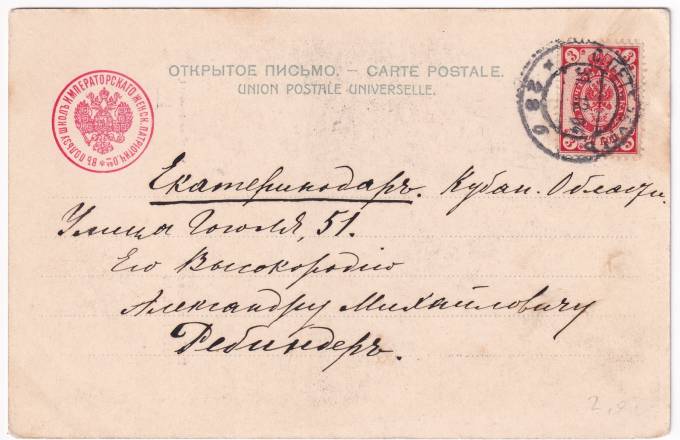 ОТКРЫТОЕ ПИСЬМО. – CARTE POSTALE.
UNION POSTALE UNIVERSELLE.
ВЪ ПОЛЬЗУ ШКОЛЪ ИМПЕРАТОРСКАГО ЖЕНСК. ПАТРІОТИЧ. О-ВА
3 3
3 3
Екатеринодаръ. Кубан. Области.
Улица Гоголя, 51.
Его Высокородію
Александру Михайловичу
Ребиндеръ.